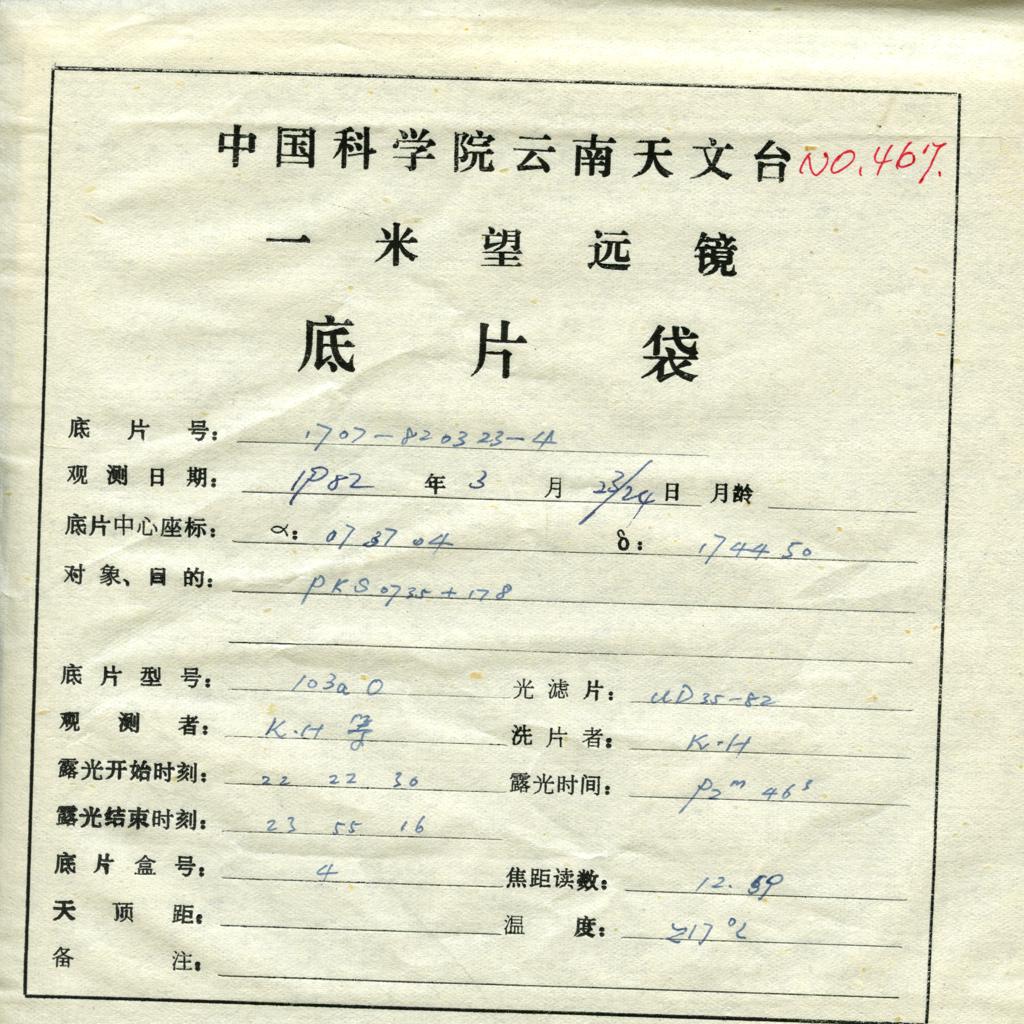 中国科学院云南天文台 NO.467.
一米望远镜
底片袋
底片号: 1707-820323-4
观测日期: 1982 年 3 月 23/24 日 月龄
底片中心座标: α: 07 37 04 δ: 17 44 50
对象、目的: PKS 0735+178
底片型号: 103a O 光滤片: UD35-82
观测者: K.H 等 洗片者: K.H
露光开始时刻: 22 22 30 露光时间: 92m 46s
露光结束时刻: 23 55 16
底片盒号: 4 焦距读数: 12.59
天顶距: 温度: 17℃
备注: